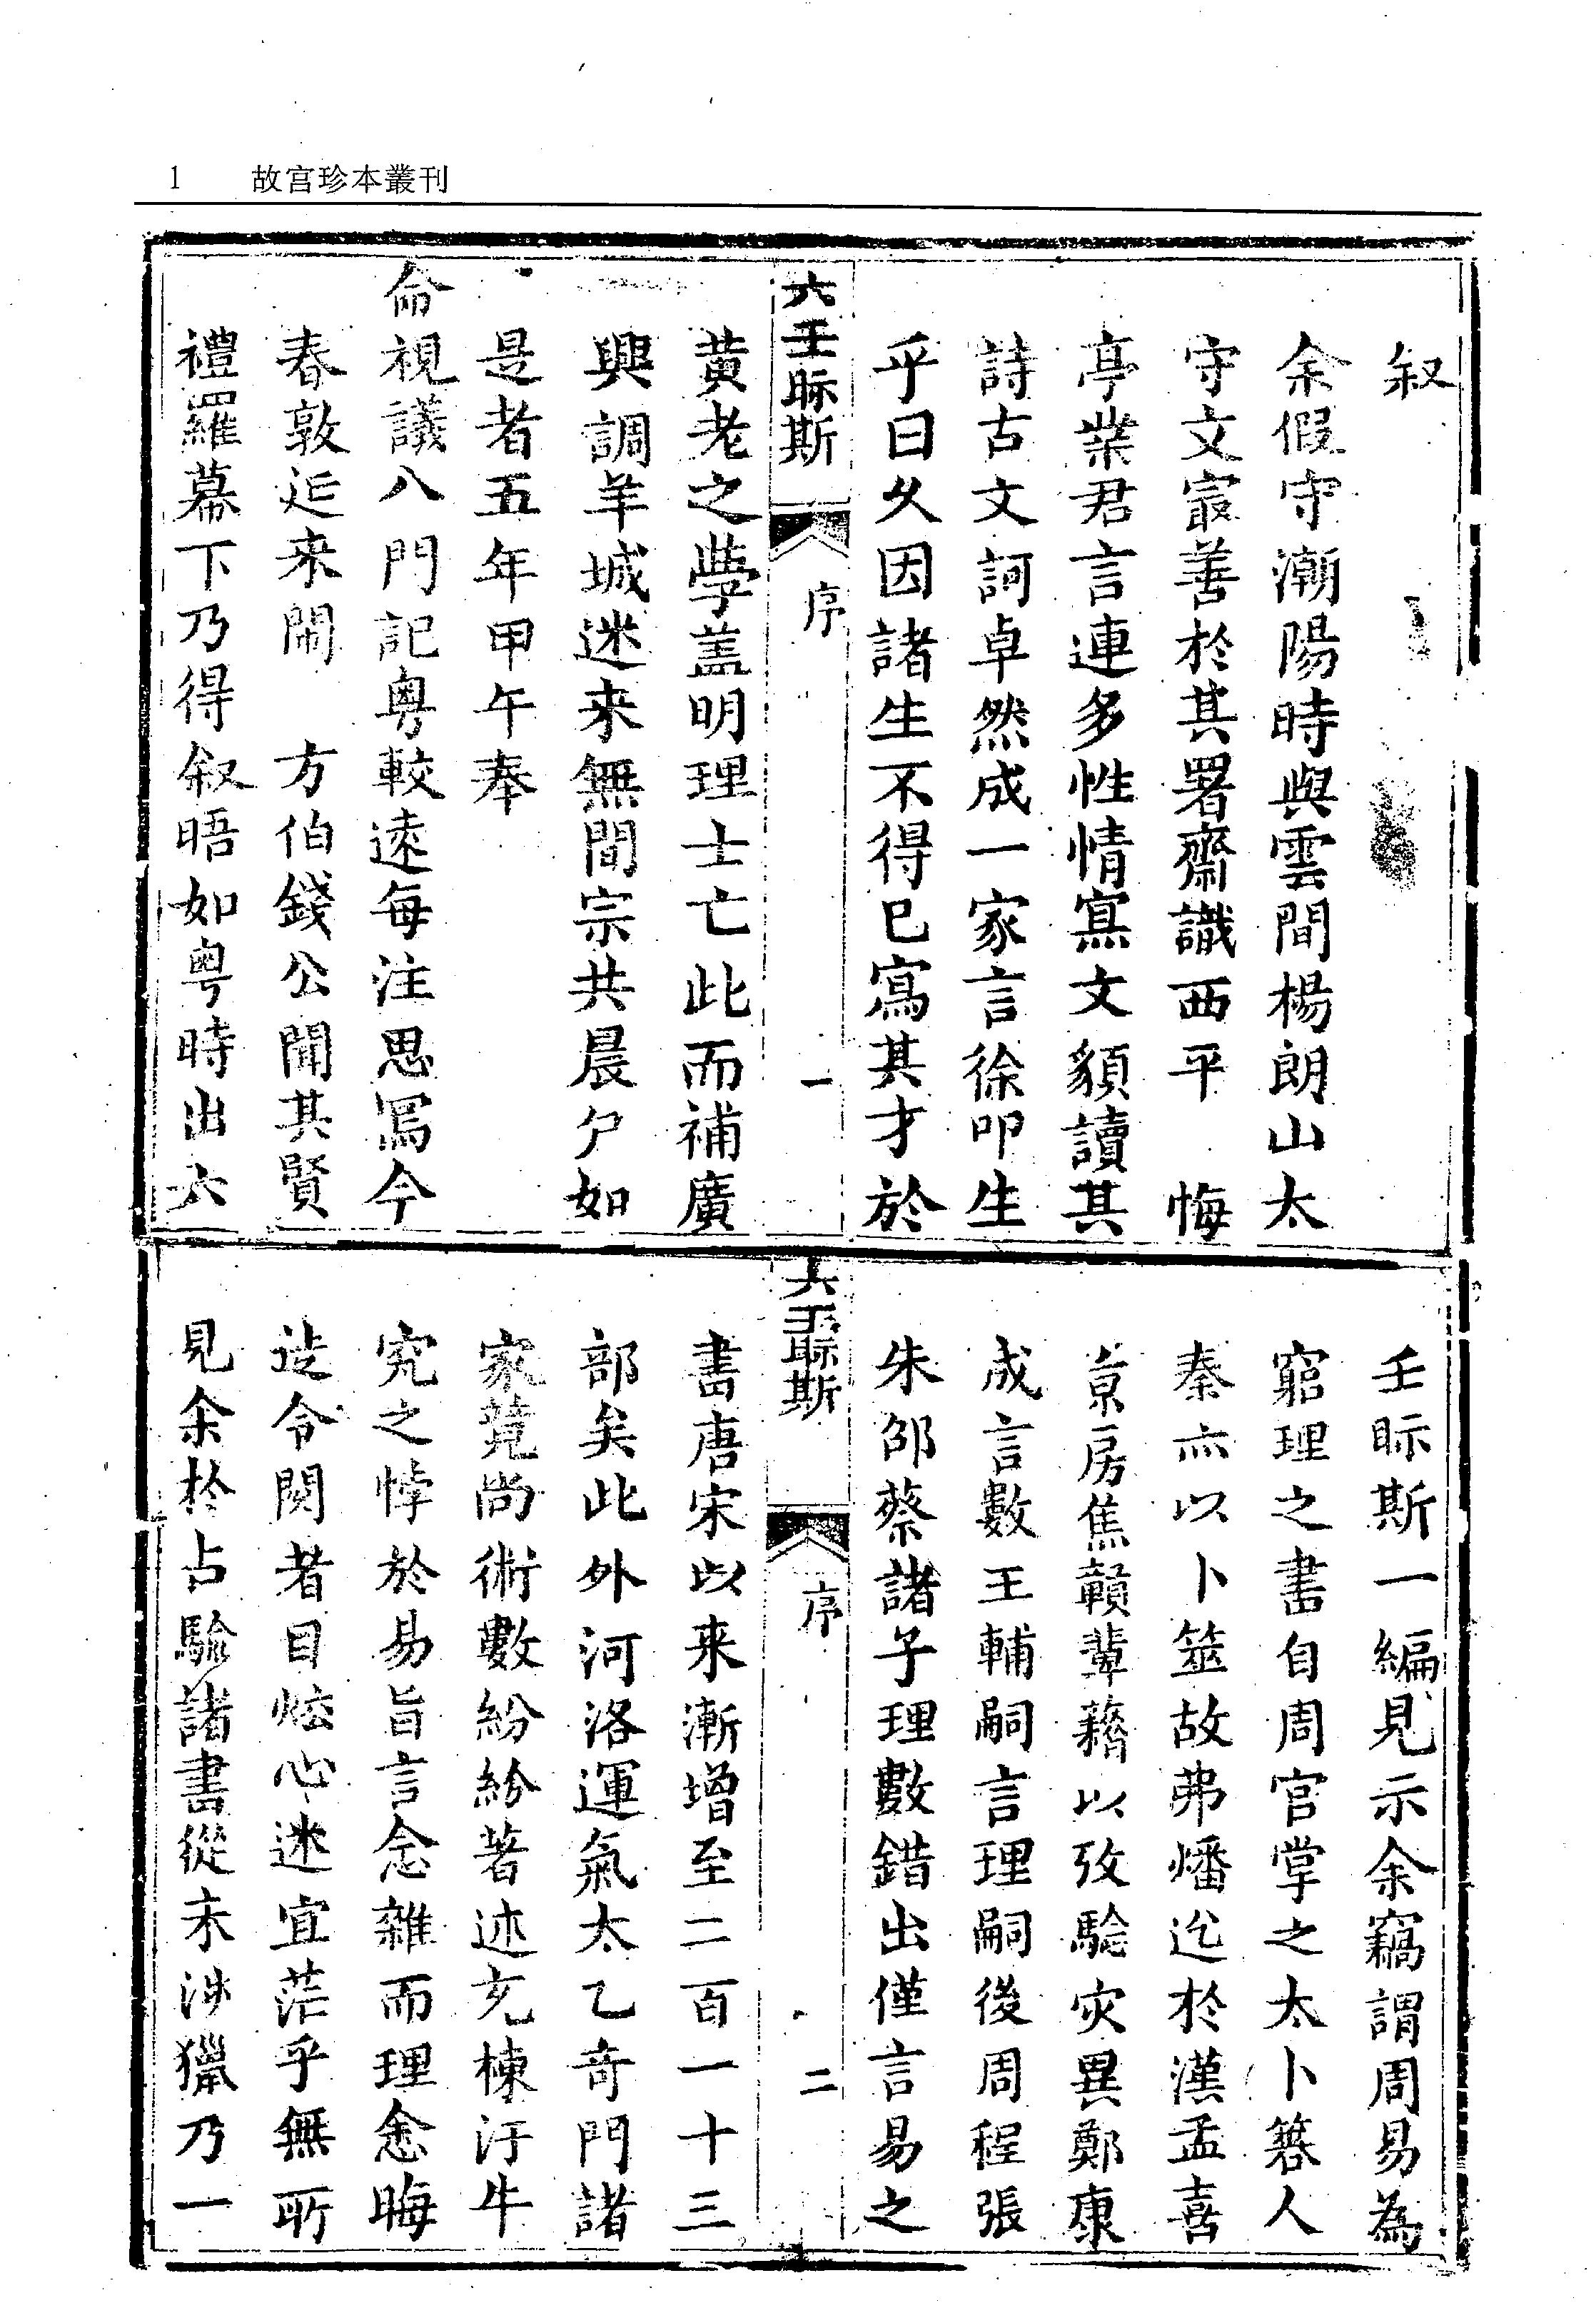 1 故宫珍本叢刊
叙
余假守潮陽時與雲間楊朗山太
守文宴善於其署齋識西平 悔
亭業君言連多性情寫文額讀其
詩古文詞卓然成一家言徐叩生
乎曰乆因諸生不得已寫其才於
六壬眎斯 序 一
黄老之學盖明理士亡此而補廣
興調羊城迷来無間宗共晨夕如
是者五年甲午奉
命視議八門記粤較逺每注思焉今
春敦延来閙 方伯錢公聞其賢
禮羅幕下乃得叙晤如粤時出六
壬眎斯一編見示余竊謂周易為
窮理之書自周官掌之太卜簭人
秦亦以卜筮故弗燔迄於漢孟喜
京房焦贛輩藉以攷驗灾異鄭康
成言數王輔嗣言理嗣後周程張
朱邵蔡諸子理數錯出僅言易之
六壬眎斯 序 二
書唐宋以来漸增至二百一十三
部矣此外河洛運氣太乙竒門諸
家競尚術數紛紛著述充棟汗牛
究之悖於易旨言念雜而理愈晦
迋令閱者目炫心迷宜茫乎無所
見余於占驗諸書從未涉獵乃一